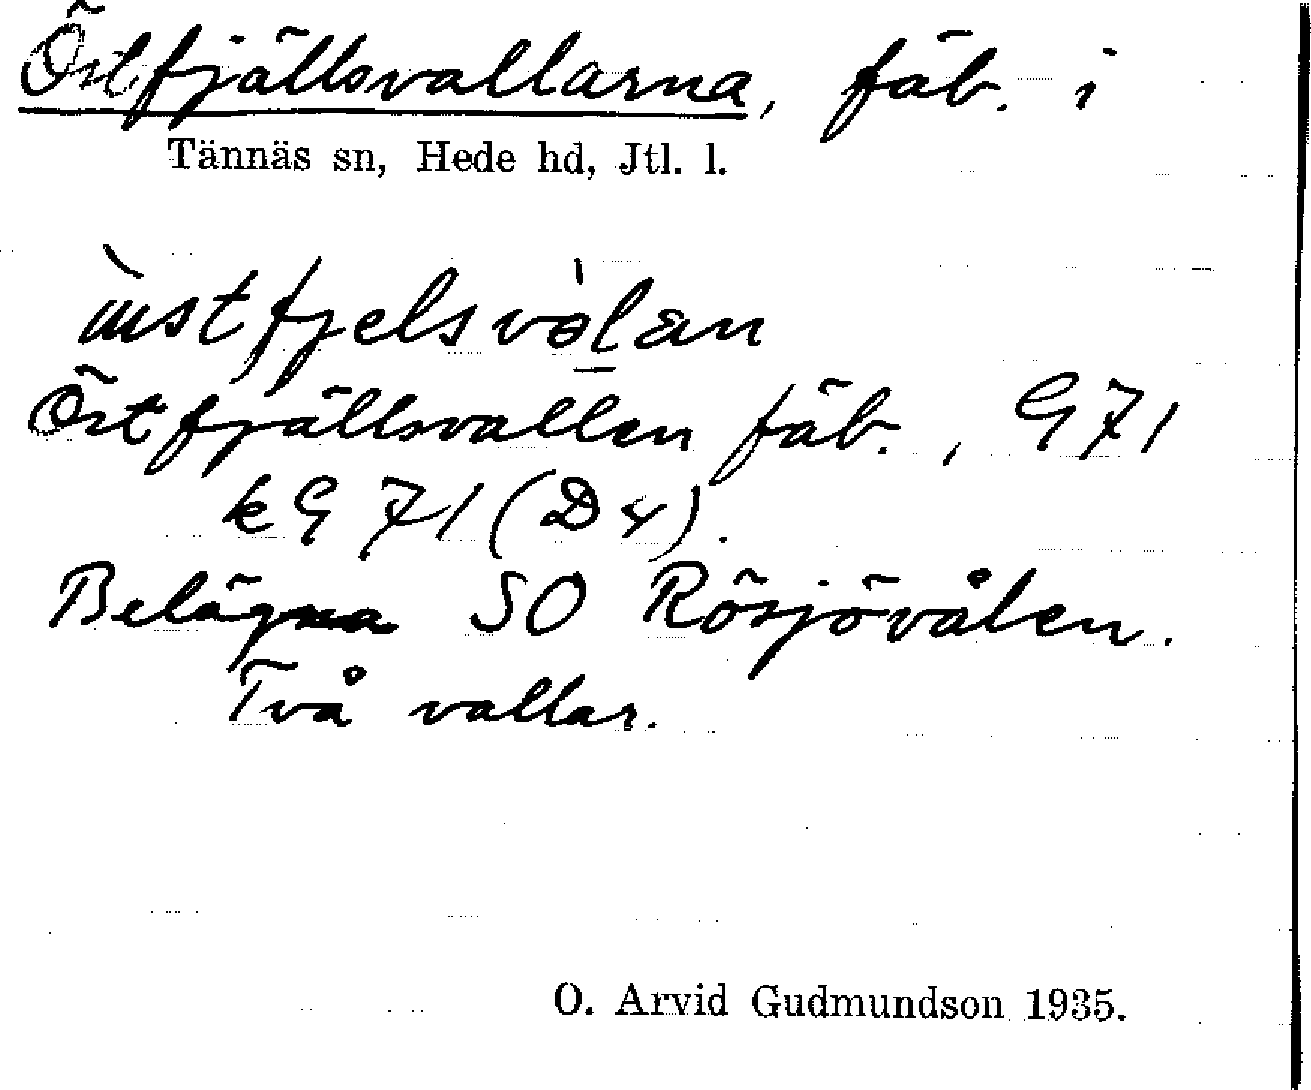 Östfjällsvallarna, fäb. i
Tännäs sn, Hede hd, Jtl. l.
Östfjällsvallen fäb., G 71
k G 71 (D 4).
Belägna SO Rösjövålen.
Två vallar.
O. Arvid Gudmundson 1935.